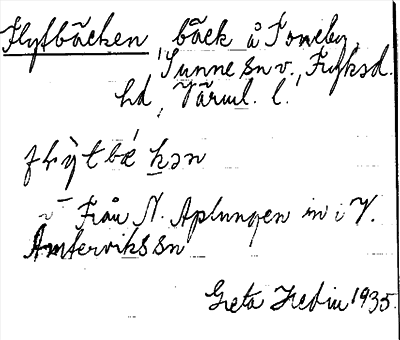 Flytbäcken, bäck å Toneby,
Sunne sn v., Fryksd.
hd, Värml. l.
flỳtbækən
Från N. Aplungen in i V.
Ämterviks sn
Greta Hedin 1935.